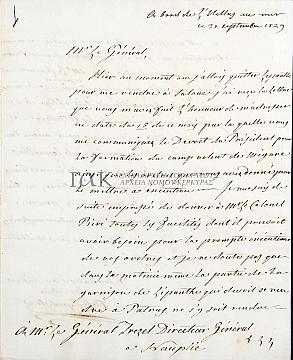 A bord de l'Hellas en mer
ce 20 septembre 1829
Mr le Général,
Hier au moment où j'allais quitter
pour me rendre à Salone j'ai reçu la lettre
que vous m'avez fait l'honneur de m'adresser
en date du 16 de ce mois par laquelle vous
me communiquez le Decret du Président pour
la formation du camp volant de Mégare
rak
ΑΡΧΕΙΑ ΝΟΜΟΥ ΚΕΡΚΥΡΑΣ
Je me suis de
suite empressé de donner à Mr le Colonel
Pieri toutes les facilités dont il pouvait
avoir besoin pour la prompte exécution
de vos ordres et je ne doute pas que
dans la matinée même la partie de la
garnison de Lépante qui devait se ren-
dre à Patras ne s'y soit rendue
A Mr Le Général Trezel Directeur Général
à Nauplie